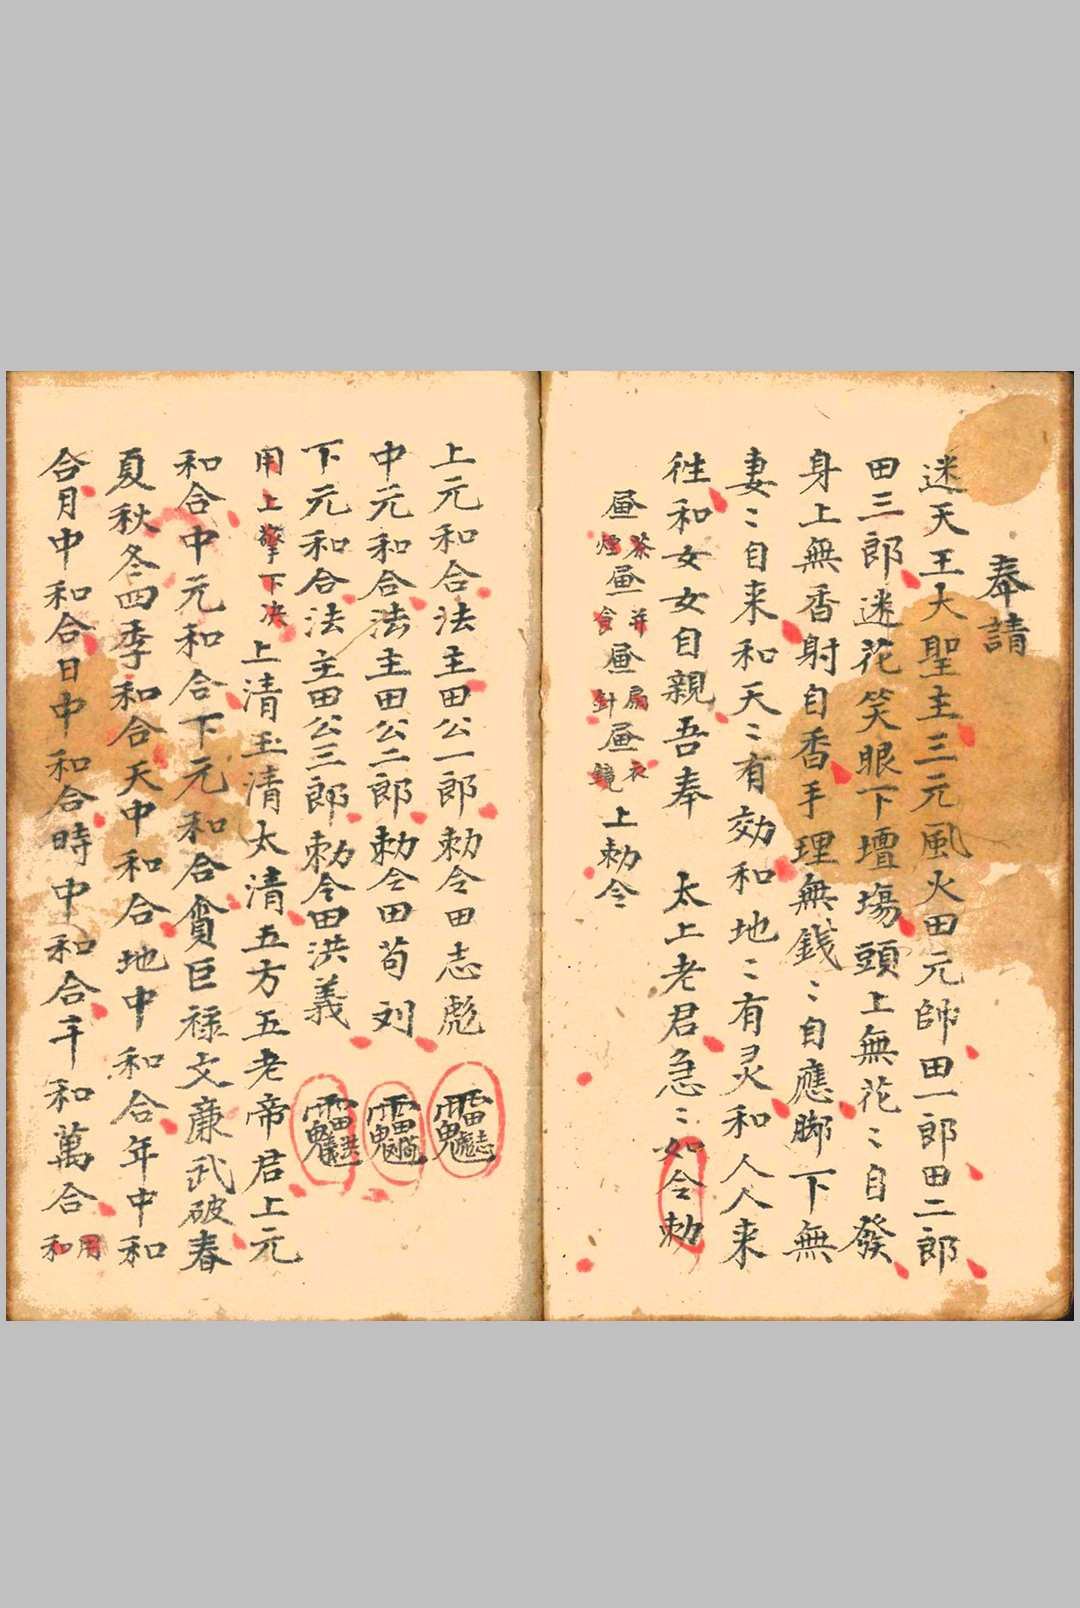 奉請
迷天王大聖主三元風火田元帥田一郎田二郎
田三郎迷花笑眼下壇塲頭上無花〻自發
身上無香射自香手理無錢〻自應脚下無
妻〻自来和天〻有効和地〻有灵和人人来
徃和女女自親吾奉 太上老君急〻如令勅
茶 并 扇 衣
煙 食 針 鏡 上勅令
上元和合法主田公一郎勅令田志彪
中元和合法主田公二郎勅令田苟刘
下元和合法主田公三郎勅令田洪義
用上擎下决上清玉清太清五方五老帝君上元
和合中元和合下元和合貪巨禄文廉武破春
夏秋冬四季和合天中和合地中和合年中和
合月中和合日中和合時中和合千和萬合
用和